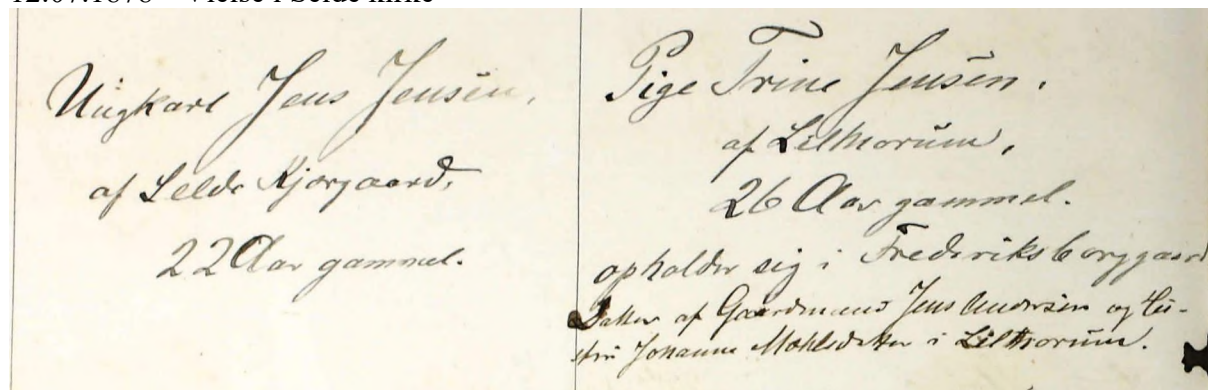 12.07.1878 – Vielse i Selde kirke
Ungkarl Jens Jensen,
af Selde Kjærgaard,
22 Aar gammel.
Pige Trine Jensen.
af Lilthorum,
26 Aar gammel.
opholder sig i Frederiksborggaard
Datter af Gaardmand Jens Andersen og Hu-
stru Johanne Mohlsdatter i Lilthorum.